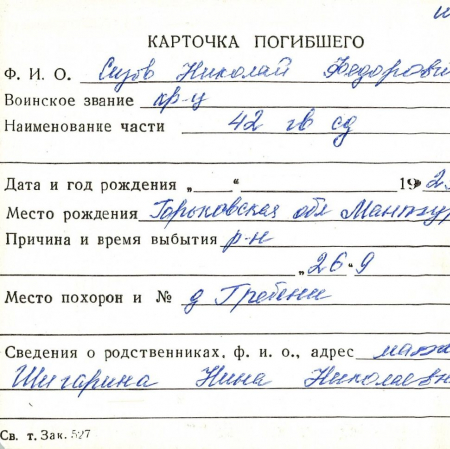 КАРТОЧКА ПОГИБШЕГО
Ф. И. О. Сизов Николай Федорови
Воинское звание кр-ц
Наименование части 42 гв сд
Дата и год рождения „ “ 192
Место рождения Горьковская обл Мантур
Причина и время выбытия р-н
„26.9
Место похорон и № д Гребени
Сведения о родственниках, ф. и о., адрес
Шигарина Нина Николаевн
Св. т. Зак. 527